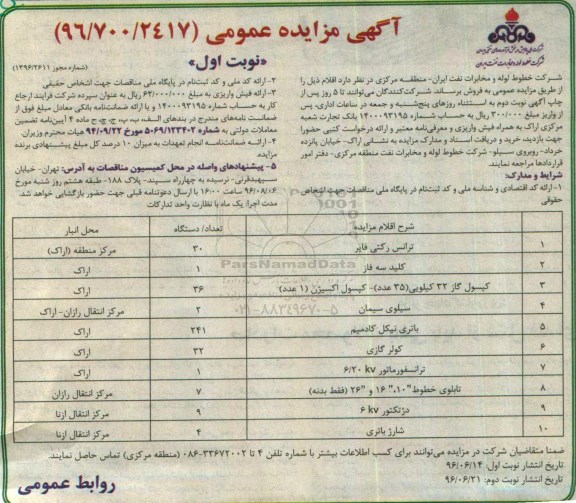 آگهی مزایده عمومی (۹۶/۷۰۰/۲۴۱۷)
«نوبت اول»
(شماره مجوز ۱۳۹۶/۲۶۱۱)
شرکت خطوط لوله و مخابرات نفت ایران
شرکت خطوط لوله و مخابرات نفت ایران- منطقه مرکزی در نظر دارد اقلام ذیل را
از طریق مزایده عمومی به فروش برساند. شرکت‌کنندگان می‌توانند تا ۵ روز پس از
چاپ آگهی نوبت دوم به استثناء روزهای پنج‌شنبه و جمعه در ساعات اداری، پس
از واریز مبلغ ۳۰۰/۰۰۰ ریال به حساب شماره ۱۴۰۰۰۹۳۱۹۵ بانک تجارت شعبه
مرکزی اراک به همراه فیش واریزی و معرفی‌نامه معتبر و ارائه درخواست کتبی حضورا
جهت بازدید، خرید و دریافت اسناد و مدارک مزایده به نشانی اراک- خیابان پانزده
خرداد- روبروی سیلو- شرکت خطوط لوله و مخابرات نفت منطقه مرکزی- دفتر امور
قراردادها مراجعه نمایند.
شرایط و مدارک:
۱- ارائه کد اقتصادی و شناسه ملی و کد ثبت‌نام در پایگاه ملی مناقصات جهت اشخاص
حقوقی
۲- ارائه کد ملی و کد ثبت‌نام در پایگاه ملی مناقصات جهت اشخاص حقیقی
۳- ارائه فیش واریزی به مبلغ ۶۲/۰۰۰/۰۰۰ ریال به عنوان سپرده شرکت فرایند ارجاع
کار به حساب شماره ۱۴۰۰۰۹۳۱۹۵ و یا ارائه ضمانت‌نامه بانکی معادل مبلغ فوق از
ضمانت نامه‌های مندرج در بندهای الف، ب، پ، چ، ج، ح ماده ۴ آیین‌نامه تضمین
معاملات دولتی به شماره ۱۲۳۴۰۲/ت۵۰۶۵۹ه مورخ ۹۴/۰۹/۲۲ هیات محترم وزیران.
۴- ارائه ضمانت‌نامه انجام تعهدات به میزان ۱۰ درصد کل مبلغ پیشنهادی برنده
مزایده
۵- پیشنهادهای واصله در محل کمیسیون مناقصات به آدرس: تهران- خیابان
سپهبدقرنی- نرسیده به چهارراه سپند- پلاک ۱۸۸- طبقه هشتم روز شنبه مورخ
۹۶/۰۸/۰۶ ساعت ۱۶:۰۰ با ارسال دعوتنامه قبلی جهت حضور بازگشایی خواهد شد.
مدت اجرا: یک ماه با نظارت واحد تدارکات
شرح اقلام مزایده تعداد/ دستگاه محل انبار
۱ ترانس رکتی فایر ۳۰ مرکز منطقه (اراک)
۲ کلید سه فاز ۱ اراک
۳ کپسول گاز ۳۲ کیلویی(۳۵ عدد)- کپسول اکسیژن (۱ عدد) ۳۶ اراک
۴ سیلوی سیمان ۲ مرکز انتقال رازان- اراک
۵ باتری نیکل کادمیم ۲۴۱ اراک
۶ کولر گازی ۳۲ اراک
۷ ترانسفورماتور ۶/۲۰ kv ۱ اراک
۸ تابلوی خطوط ۱۰"، ۱۶" و ۲۶" (فقط بدنه) ۷ مرکز انتقال رازان
۹ دژنکتور ۶ kv ۹ مرکز انتقال ازنا
۱۰ شارژ باتری ۴ مرکز انتقال ازنا
ParsNamadData
۰۲۱-۸۸۳۴۹۶۷۰-۵
ضمنا متقاضیان شرکت در مزایده می‌توانند برای کسب اطلاعات بیشتر با شماره تلفن ۴ تا ۳۳۶۷۲۰۰۲-۰۸۶ (منطقه مرکزی) تماس حاصل نمایند.
تاریخ انتشار نوبت اول: ۹۶/۰۶/۱۴
تاریخ انتشار نوبت دوم: ۹۶/۰۶/۲۱
روابط عمومی